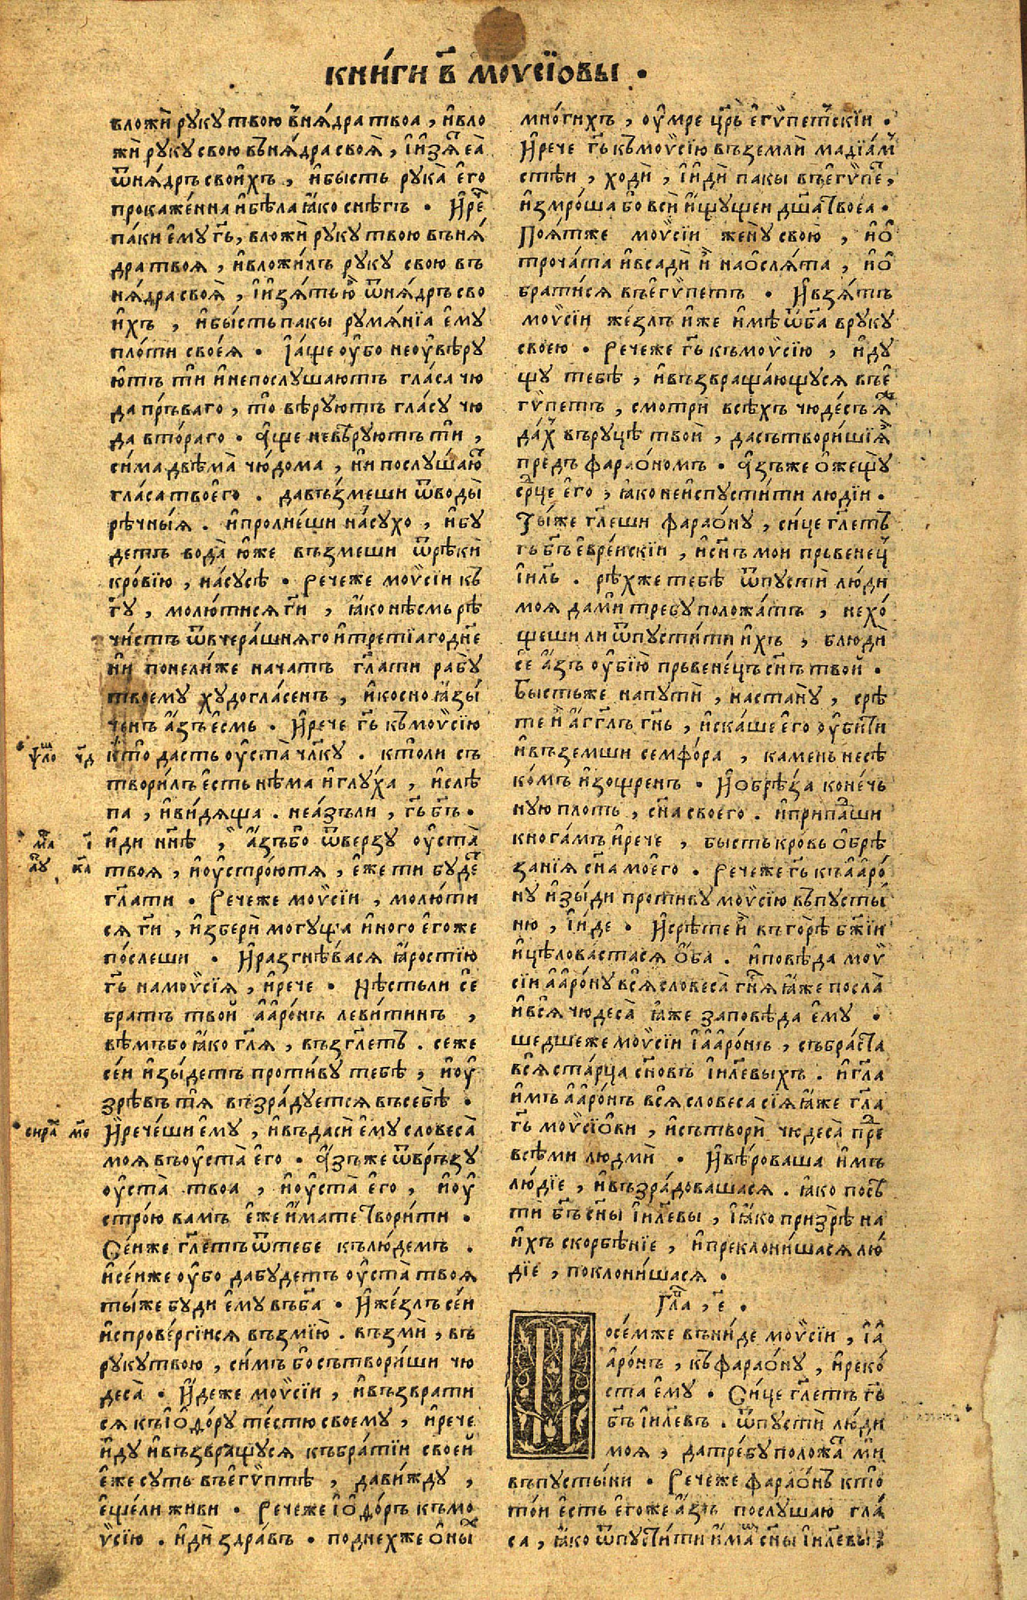 книги в҃ моѵсїовы .
вложи руку твою внядра твоа , ивло
жи руку свою въ нядра своя , їизя еа
ѿнядръ своихъ , ибысть рука его
прокаженна ибѣла ꙗко снѣгъ . Ирⷱ҇е
паки ему гь҃, вложи руку твою въ ня
дра твоя , ивложихъ руку свою въ
нядра своя , їизятъ ю ѿнядръ сво
ихъ , ибысть пакы румянїа ему
плоти своея . Їаще оубо неоувѣру
ютъ ти инепослушаютъ гласа чю
да пръваго , то вѣруютъ гласу чю
да втораго . Аще невѣруютъ ти ,
сима двѣма чюдома , ни послушаюⷮ
гласа твоего . давъзмеши ѿводы
рѣчныя . ипролиеши насухо , ибу
детъ вода юже възмеши ѿрѣки
кровїю , насусѣ . Речеже моѵсїи къ
гу҃ , молютися ги҃ , ꙗко нѣсмь рѣ
чистъ ѿвчерашняго итретїаго дн҃е
ни понелиже начатъ гл҃ати рабу
твоему худогласенъ , икосноꙗзы
ченъ азъ есмь . Ирече гь҃ къ моѵсїю
кто дасть оуста чл҃ку . кто ли съ
творилъ есть нѣма иглуха , ислѣ
па , ивидяща . не азъ ли , гь҃ бг҃ъ .
иди нн҃ѣ , азъ бо ѿверзу оуста
твоя , иоустроютя , еже ти будеⷮ
гл҃ати . Речеже моѵсїи , молюти
ся ги҃ , избери могуща иного егоже
послеши . Иразгнѣвася ꙗростїю
гь҃ на моѵсїя , ирече . Нѣсть ли се
братъ твой ааронъ левитинъ ,
вѣмъ бо ꙗко гл҃я , възгл҃етъ . сеже
сеи изыдетъ противу тебѣ , иоу
зрѣвъ тя възрадуется въ себѣ .
Иречеши ему , ивъдаси ему словеса
моя въ оуста его . Азъ же ѿвръзу
оуста твоа , иоуста его , иоу
строю вамъ еже имате творити .
Сеиже гл҃етъ ѿтебе къ людемъ .
исеиже оубо да будетъ оуста твоя
тыже буди ему въ ба҃ . Ижезлъ сеи
испровергїися възмїю . възми , въ
руку твою , симъ бо сътвориши чю
деса . Идеже моѵсїи , ивъзврати
ся къ їодору тестю своему , ирече
иду ивъзвращуся къ братїи своей
еже суть въ егѵптѣ , да вижду ,
ещели живи . Речеже їодоръ къ мо
ѵсїю . иди здравъ . поднехже оныⷯ
многихъ , оумре цр҃ь егѵпетⷭ҇кїи .
Ирече гь҃ къ моѵсїю въ земли мадїамⷭ҇
стѣи , ходи , їиди пакы въ егѵпе ,
измроша бо вси ищущеи дш҃а твоеа .
Поятже моѵсїи жену свою , ио
трочата ивсади и на ослята , ио
братися въ егѵпетъ . Ивзятъ
моѵсїи жезлъ иже имѣ ѿ ба҃ вруку
своею . Речеже гь҃ къ моѵсїю , иду
щу тебѣ , ивъзвращающуся въ е
гѵпетъ , смотри всѣхъ чюдесъ ꙗⷤ
даⷯ въ руцѣ твои , да сътворишїя
предъ фараономъ . Азъже ожещу
срⷣце его , ꙗко неиспустити людїи .
Тыже гл҃еши фараону , сице гл҃етъ
гь҃ бг҃ъ еврейскїи , исн҃ъ мои прьвенець
їил҃ь . рѣхже тебѣ ѿпусти люди
моя дами требу положатъ , нехо
щеши ли ѿпустити ихъ , блюди
се азъ оубїю прьвенецъ сн҃ъ твой .
Бысть же на пути , на стану , срѣ
те и аггл҃ъ гн҃ь , искаше его оубити
ивъземши семфора , камень несѣ
комъ изощренъ . Иобрѣза конечь
ную плоть , сн҃а своего . иприпаши
к ногамъ ирече , бысть кровь обрѣ
занїя сн҃а моего . Речеже гь҃ къ ааро
ну изыди противу моѵсїю въ пусты
ню , їиде . Исрѣте и въ горѣ бж҃їи
ицѣловастася оба . иповѣда моѵ
сїи аарону вся словеса гн҃я ꙗже посла
ився чюдеса ꙗже заповѣда ему .
шедшеже моѵсїи їааронъ , събраста
вся старца сн҃овъ їил҃евыхъ . игл҃а
имъ ааронъ вся словеса сїя ꙗже гл҃а
гь҃ моѵсїови , исътвори чюдеса преⷣ
всѣми людми . Ивѣроваша имъ
людїе , ивъзрадовашася . ꙗко посѣ
ти бг҃ъ сн҃ы їил҃евы , їꙗко призрѣ на
ихъ скорбѣнїе , ипреклонишася лю
дїе , поклонишася .
Гла҃ , є҃ .
Посемже въниде моѵсїи , їа
аронъ , къ фараону , ирекоⷭ҇
ста ему . Сице гл҃етъ гь҃
бг҃ъ їил҃евъ . ѿпусти люди
моя , да требу положаⷮ ми
въ пустыни . Речеже фараонъ кто
тои есть егоже азъ послушаю гла
са , ꙗко ѿпустити имаⷨ сн҃ы їил҃евы